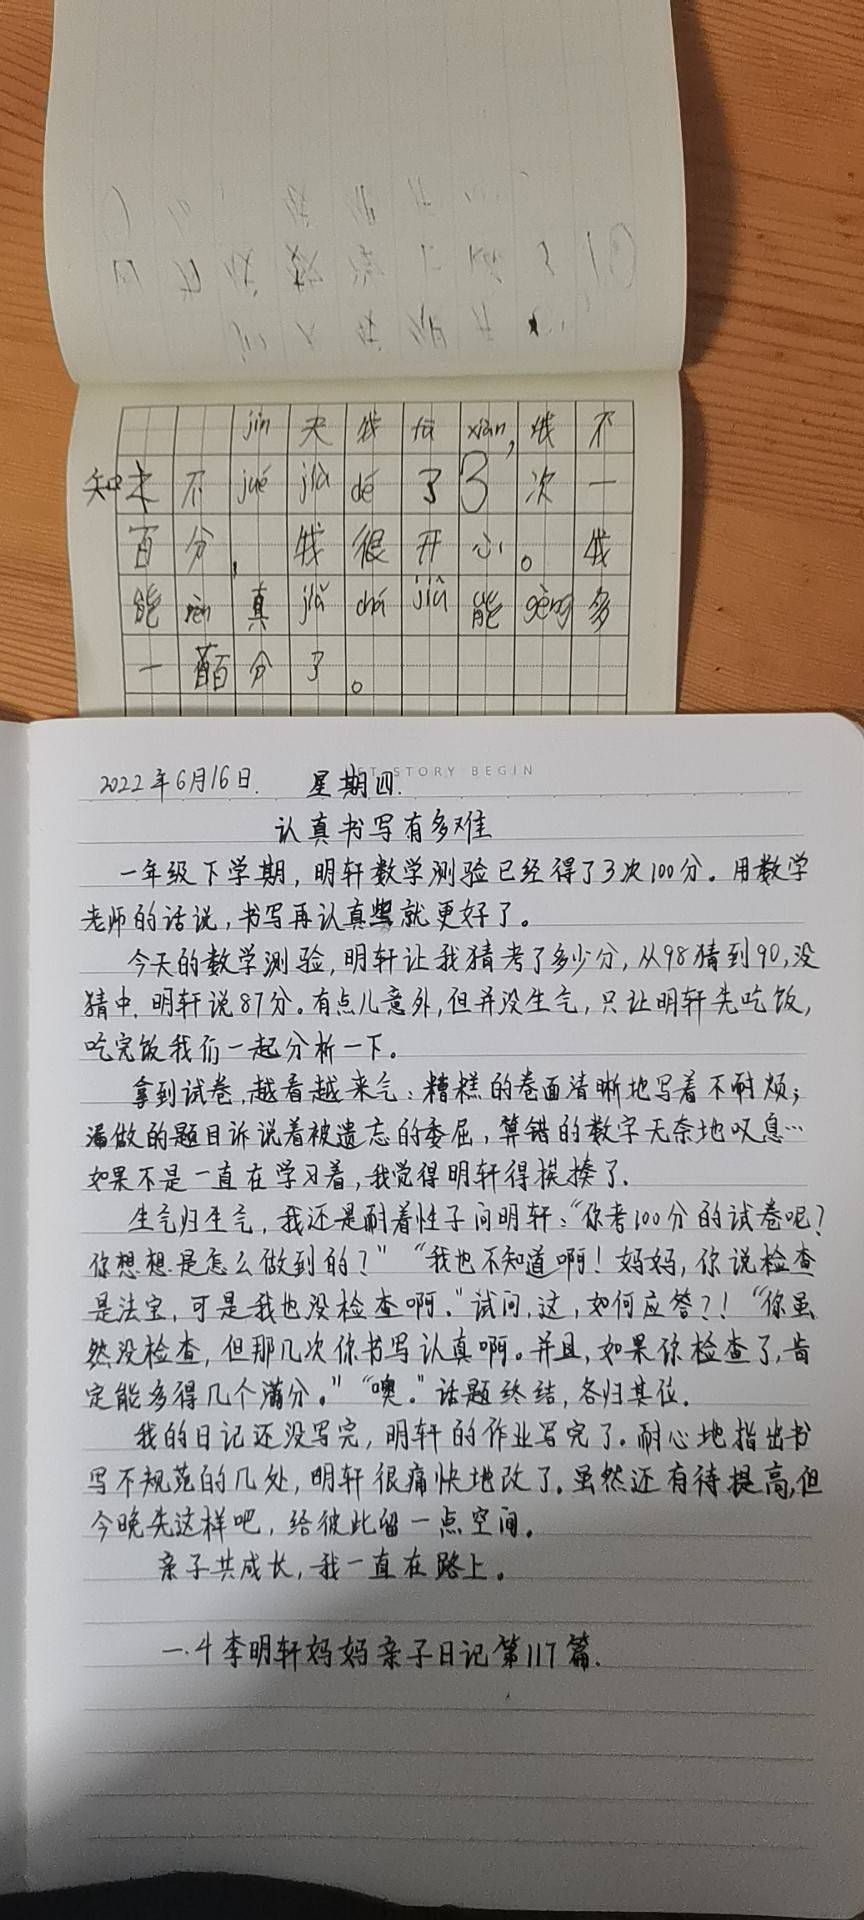 jīn天我fā xiàn，我不
知未不jué jiù dé了3次一
百分，我很开心。我
能rèn真jiǎ chá jiù能gèng多
一百分了。
ST STORY BEGIN
2022年6月16日. 星期四.
认真书写有多难
一年级下学期，明轩数学测验已经得了3次100分。用数学
老师的话说，书写再认真些就更好了。
今天的数学测验，明轩让我猜考了多少分，从98猜到90，没
猜中，明轩说87分。有点儿意外，但并没生气，只让明轩先吃饭，
吃完饭我们一起分析一下。
拿到试卷，越看越来气：糟糕的卷面清晰地写着不耐烦；
漏做的题目诉说着被遗忘的委屈，算错的数字无奈地叹息…
如果不是一直在学习着，我觉得明轩得挨揍了.
生气归生气，我还是耐着性子问明轩：“你考100分的试卷呢？
你想想是怎么做到的？”“我也不知道啊！妈妈，你说检查
是法宝，可是我也没检查啊。”试问，这，如何应答？！“你虽
然没检查，但那几次你书写认真啊。并且，如果你检查了，肯
定能多得几个满分。”“噢。”话题终结，各归其位.
我的日记还没写完，明轩的作业写完了。耐心地指出书
写不规范的几处，明轩很痛快地改了。虽然还有待提高，但
今晚先这样吧，给彼此留一点空间。
亲子共成长，我一直在路上。
一.4李明轩妈妈亲子日记第117篇.